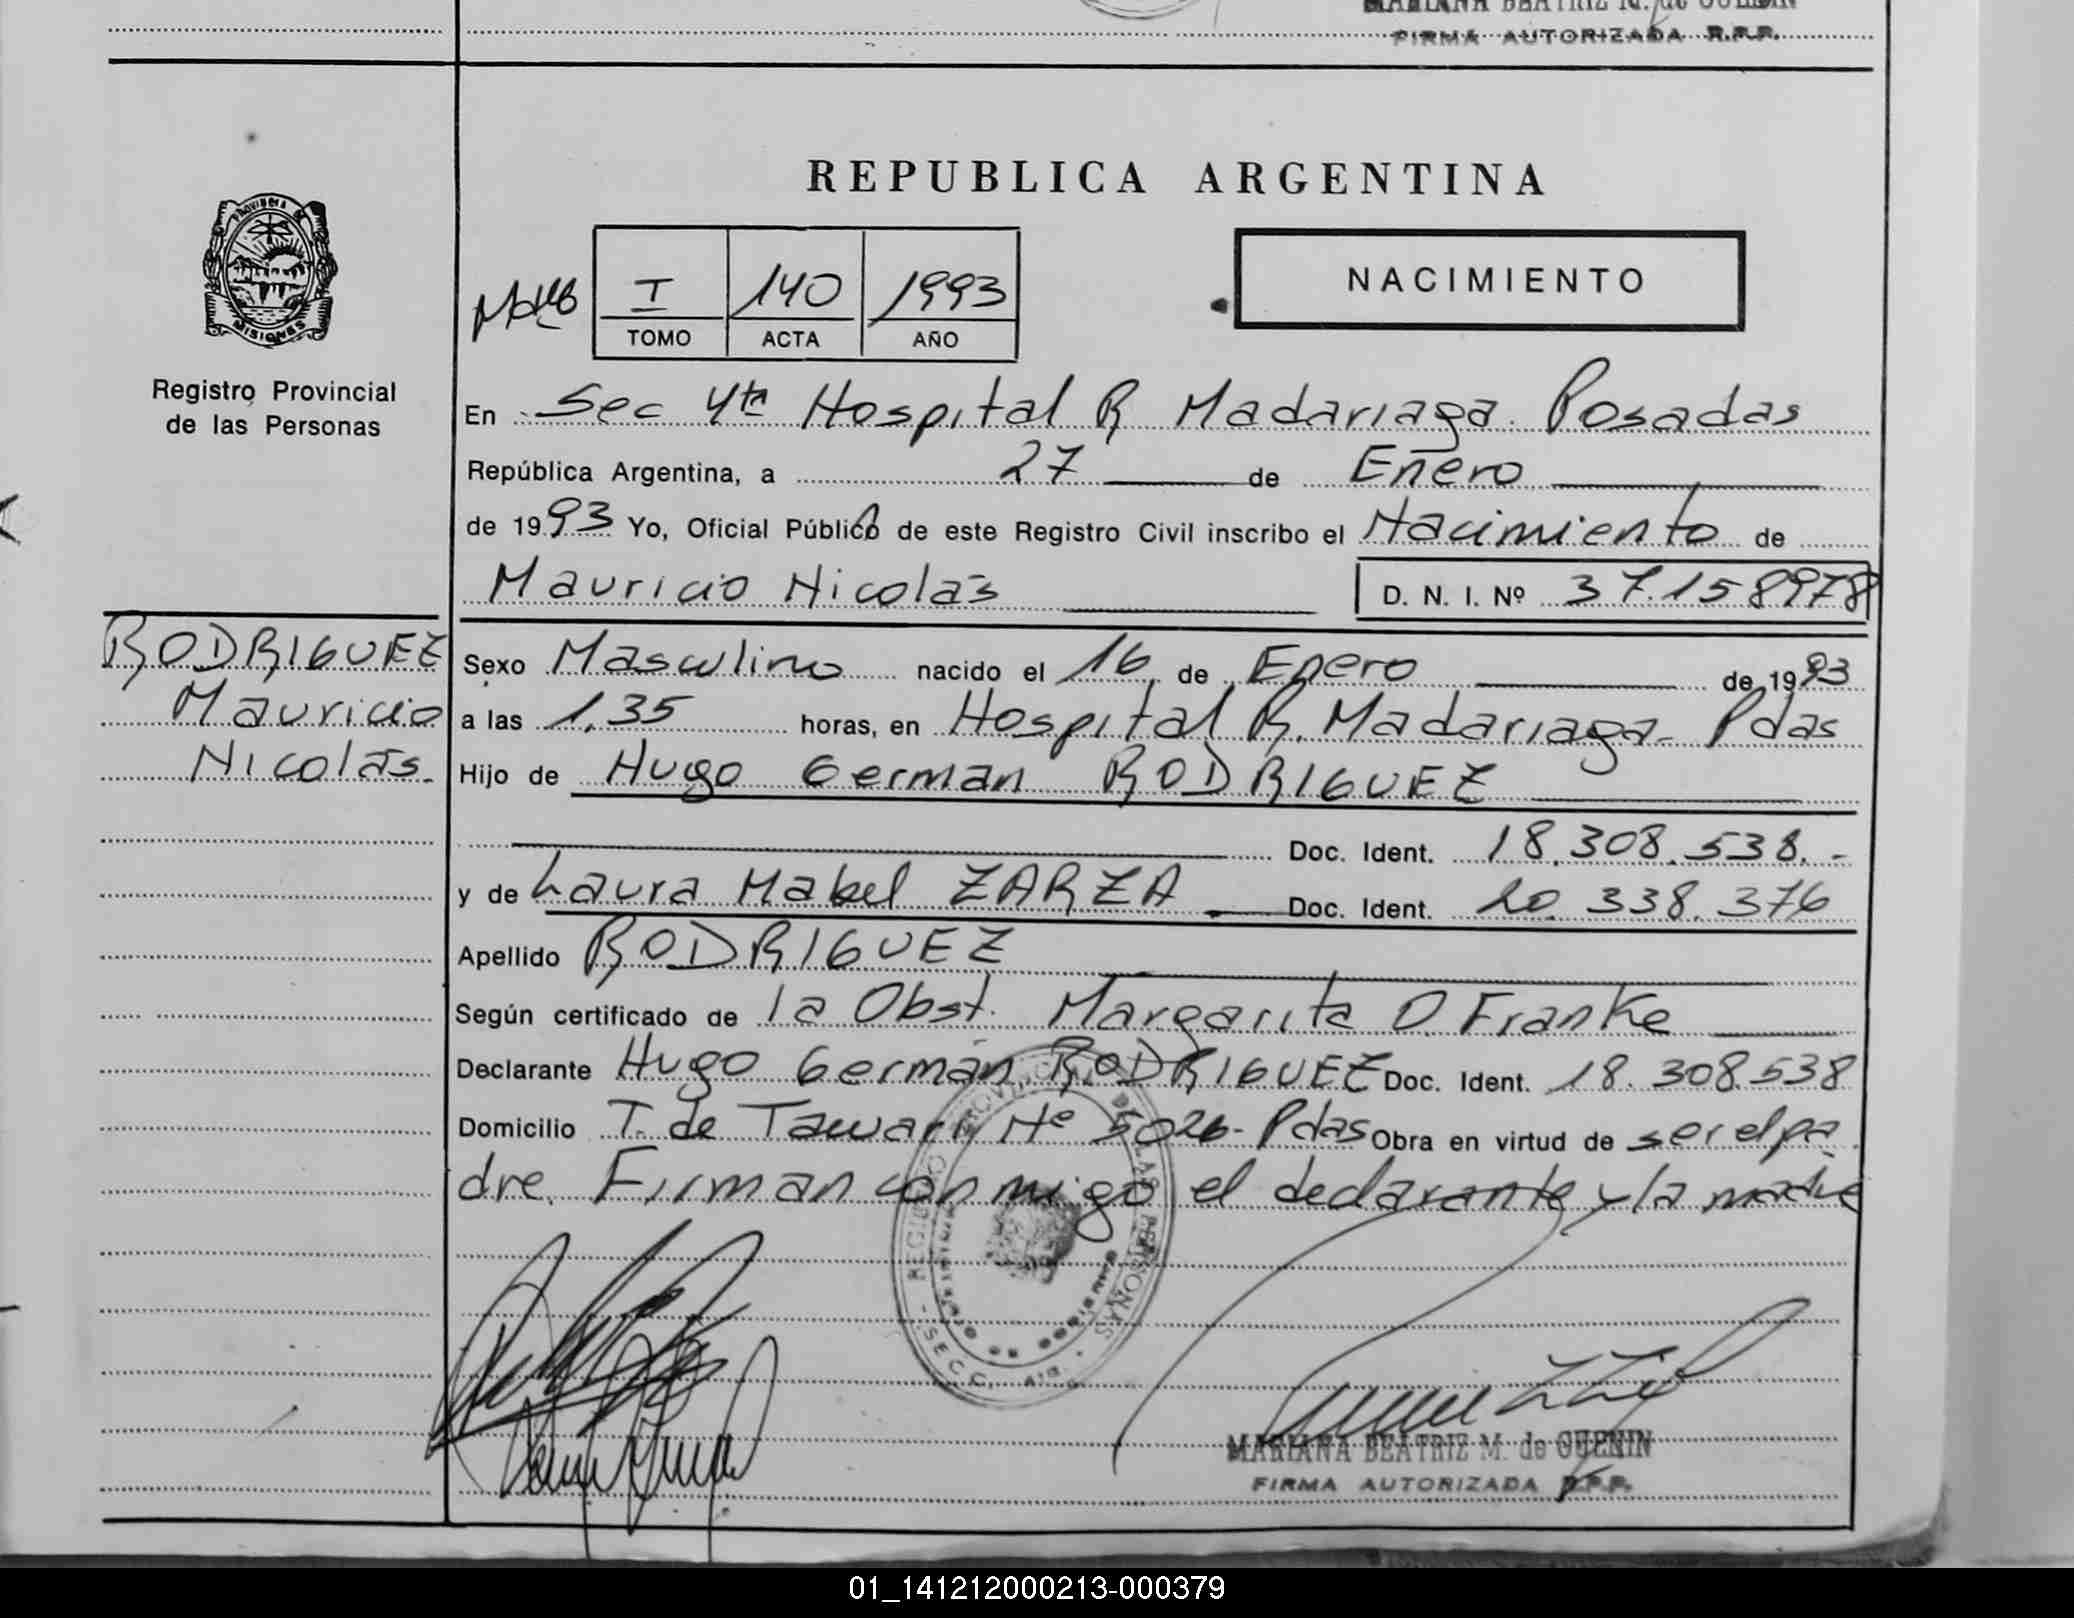 MARIANA BEATRIZ M. de GUENIN
FIRMA AUTORIZADA R.P.P.
PROVINCIA DE
MISIONES
Registro Provincial
de las Personas
RODRIGUEZ
Mauricio
Nicolás.
REPUBLICA ARGENTINA
I 140 1993
TOMO ACTA AÑO
NACIMIENTO
En Sec 4ta Hospital R Madariaga. Posadas
República Argentina, a 27 de Enero
de 1993 Yo, Oficial Público de este Registro Civil inscribo el Nacimiento de
Mauricio Nicolás D. N. I. Nº 37.158978
Sexo Masculino nacido el 16 de Enero de 1993
a las 1,35 horas, en Hospital R. Madariaga- Pdas
Hijo de Hugo German RODRIGUEZ
Doc. Ident. 18.308.538.-
y de Laura Mabel ZARZA Doc. Ident. 20.338.376
Apellido RODRIGUEZ
Según certificado de la Obst. Margarita O. Franke
Declarante Hugo Germán RODRIGUEZ Doc. Ident. 18.308.538
Domicilio T. de Tawari Nº 5026- Pdas Obra en virtud de ser el pa
dre. Firman conmigo el declarante y la madre
REGISTRO PROVINCIAL DE LAS PERSONAS
MARIANA BEATRIZ M. de GUENIN
FIRMA AUTORIZADA R.P.P.
01_141212000213-000379